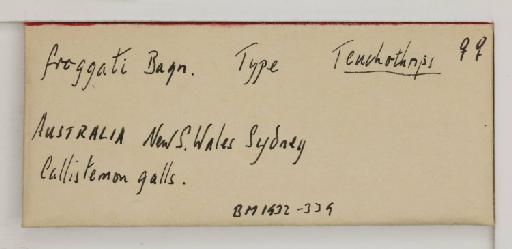 froggati Bagn. Type Teuchothrips ♀♀
AUSTRALIA New S. Wales Sydney
Callistemon galls.
BM 1932-339